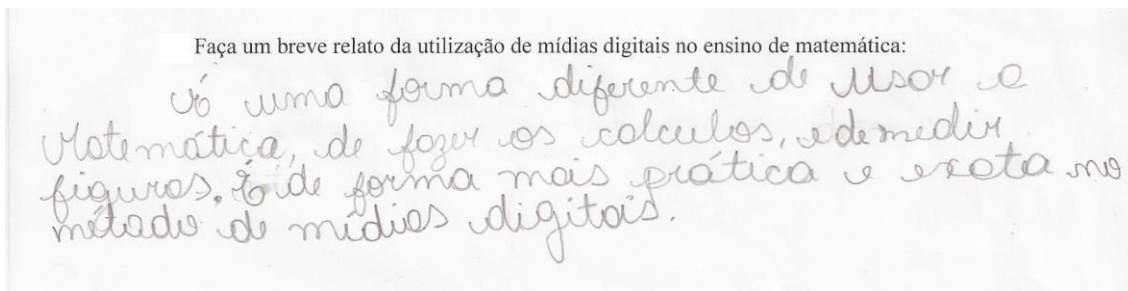 Faça um breve relato da utilização de mídias digitais no ensino de matemática:
É uma forma diferente de usar a
Matemática, de fazer os calculos, e de medir
figuras. É de forma mais prática e exata no
método de mídias digitais.